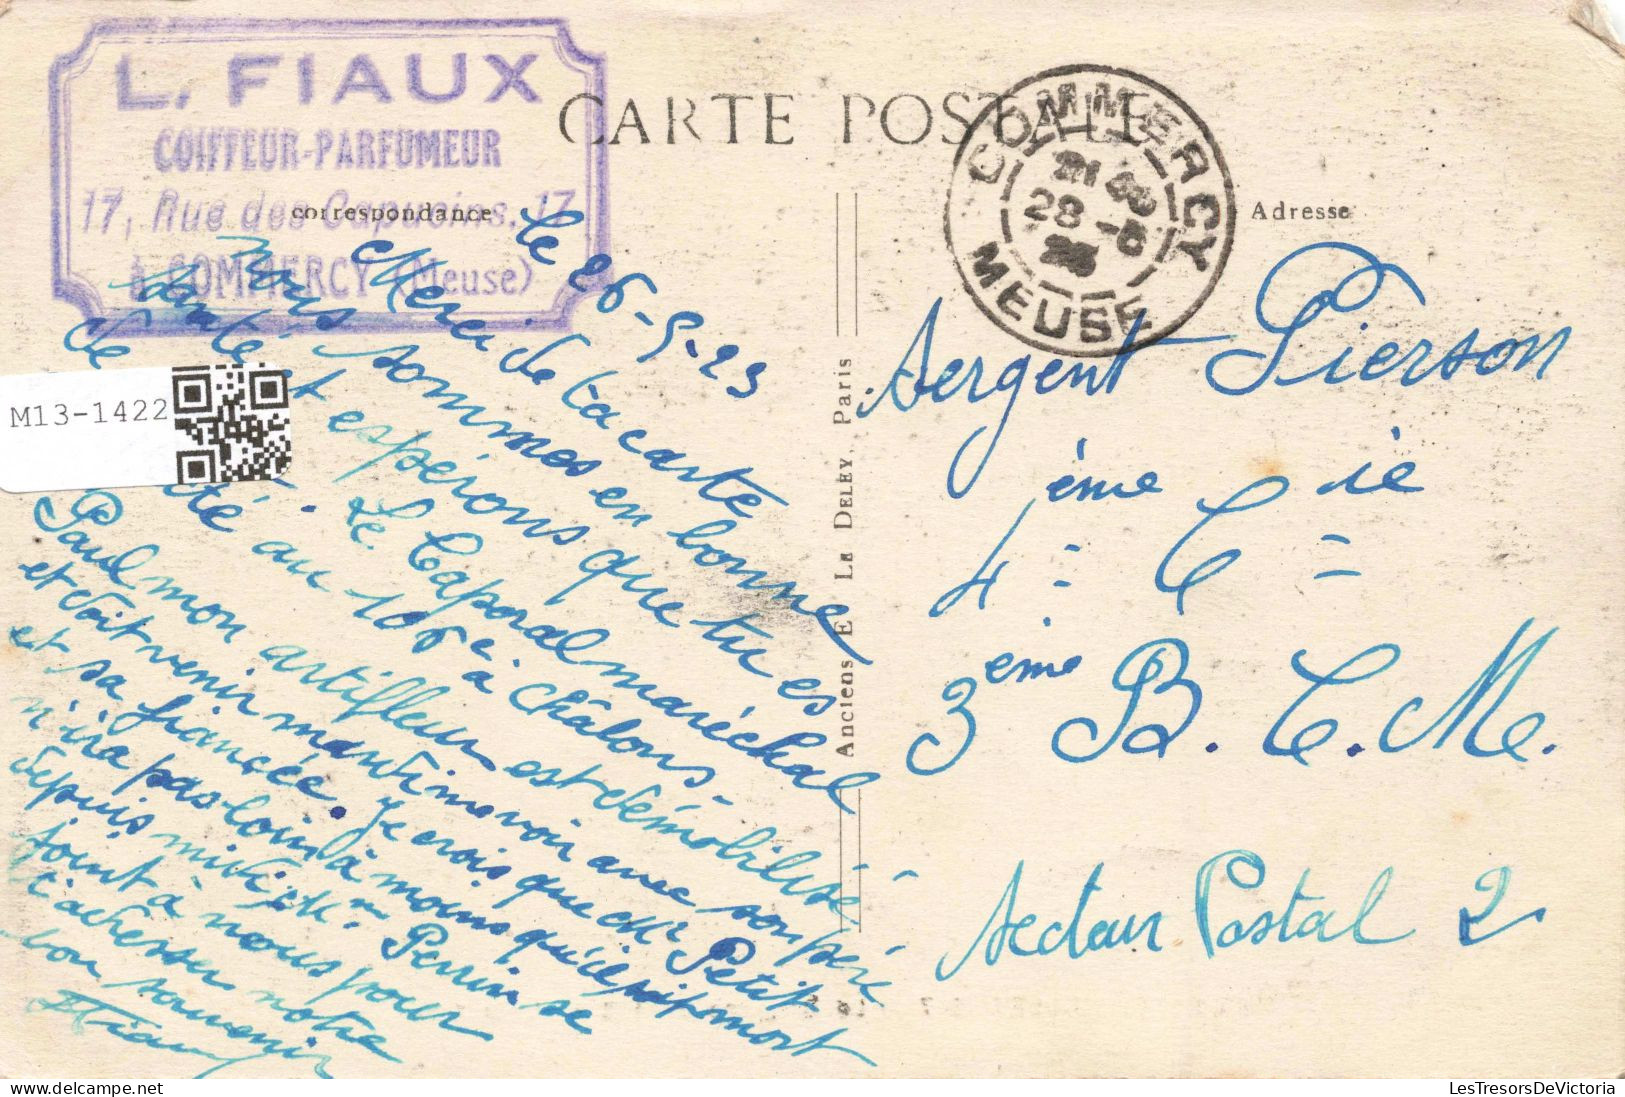 L. FIAUX
COIFFEUR-PARFUMEUR
17, Rue des Capucins, 17
à COMMERCY (Meuse)
CARTE POSTALE
correspondance
Adresse
COMMERCY
28 -5
MEUSE
M13-1422
le 26-5-23
Merci de ta carte
sommes en bonne
santé et espérons que tu es
de
té au 106e à Châlons.
Le Caporal maréchal
Paul mon artilleur est démobilisé
et doit venir mardi me voir avec son père
et sa fiancée. Je crois que Mr Petit
n'ira pas loin à moins qu'il soit mort
depuis midi. Mme Perrin se
joint à nous pour
t'adresser notre
bon souvenir
Fiaux
Anciens E LE DELEY, Paris
Sergent Pierson
4ème Cie
3ème B. C. M.
Secteur Postal 2
LesTresorsDeVictoria